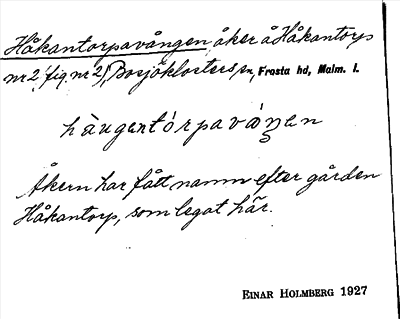 Håkantorpavången åker å Håkantorps
nr 2 (fig. nr 2), Borjöklosters sn, Frosta hd, Malm. l.
hàugentórpaváŋen
Åkern har fått namn efter gården
Håkantorp, som legat här.
EINAR HOLMBERG 1927